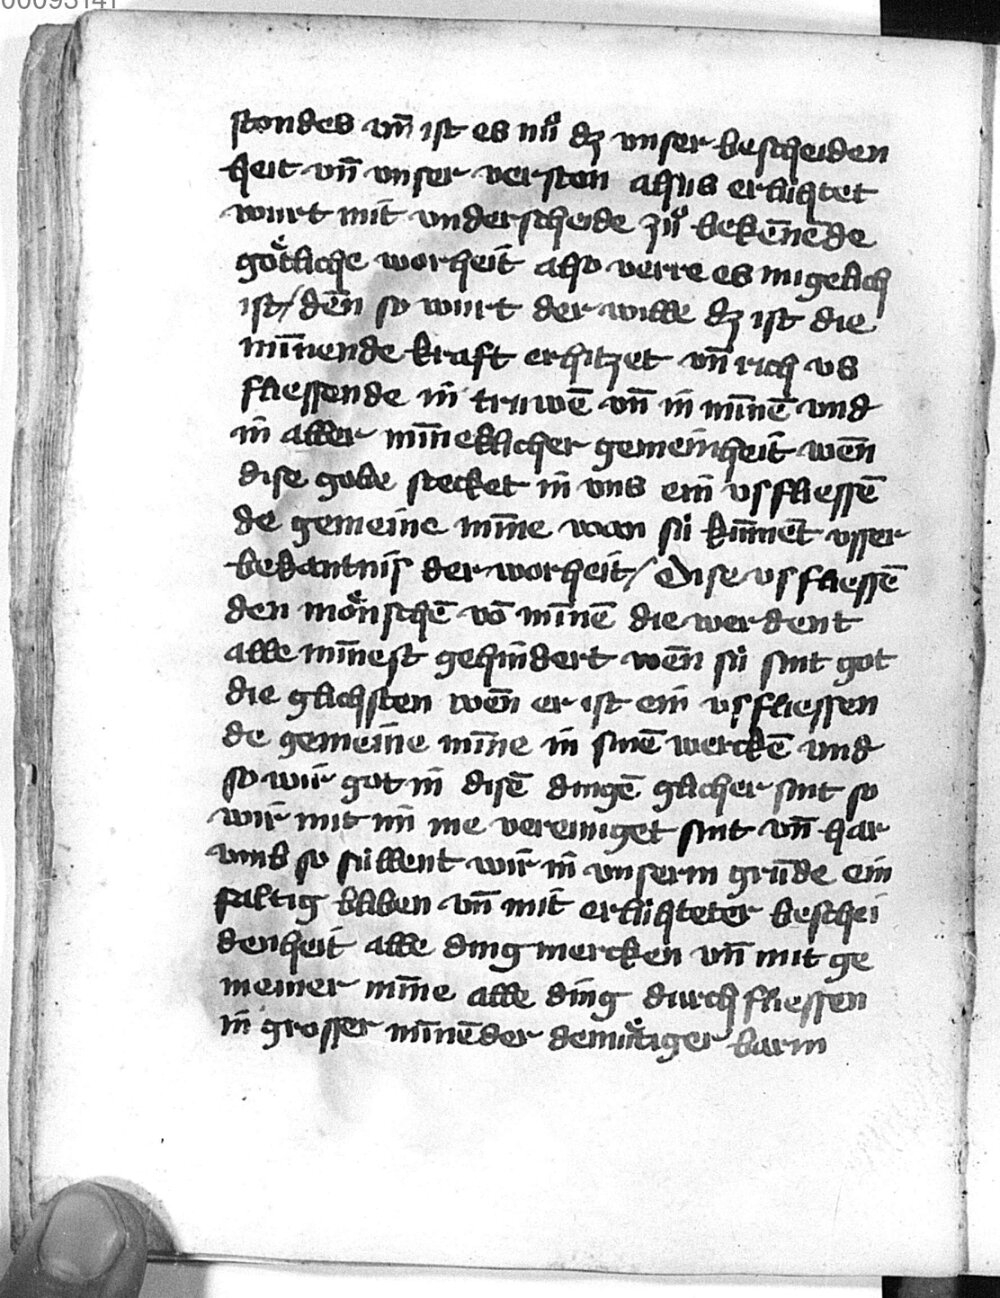 00093141
stondes vn̄ ist es nuͦ dz vnser bescheiden
heit vn̄ vnser verston alsus erlúhtet
wurt mit vnderscheide zuͦ bekēnēde
goͤtliche worheit also verre es migelich
ist / den̄ so wurt der wille dz ist die
min̄ende kraft erhitzet vn̄ rich vs
fliessende in truwē vn̄ in min̄ē vnd
in aller min̄eklicher gemeinheit wen̄
dise gobe stecket in vns ein vsfliessē
de gemeine min̄e wan sú kum̄et vsser
bekantnis der worheit / Dise vsfliessē
den moͤnschē vō min̄ē die werdent
alle min̄est gehindert wen̄ sú sint got
die glichsten wen̄ er ist ein vsfliessen
de gemeine min̄e in sinē werckē vnd
so wir got in disē dingē glicher sint so
wir mit im me vereiniget sint vn̄ har
vmb so súllent wir in vnserm grūde ein
faltig bliben vn̄ mit erlúhteter beschei
denheit alle ding mercken vn̄ mit ge
meiner min̄e alle ding durch fliessen
in grosser min̄ēder demuͤtiger barm